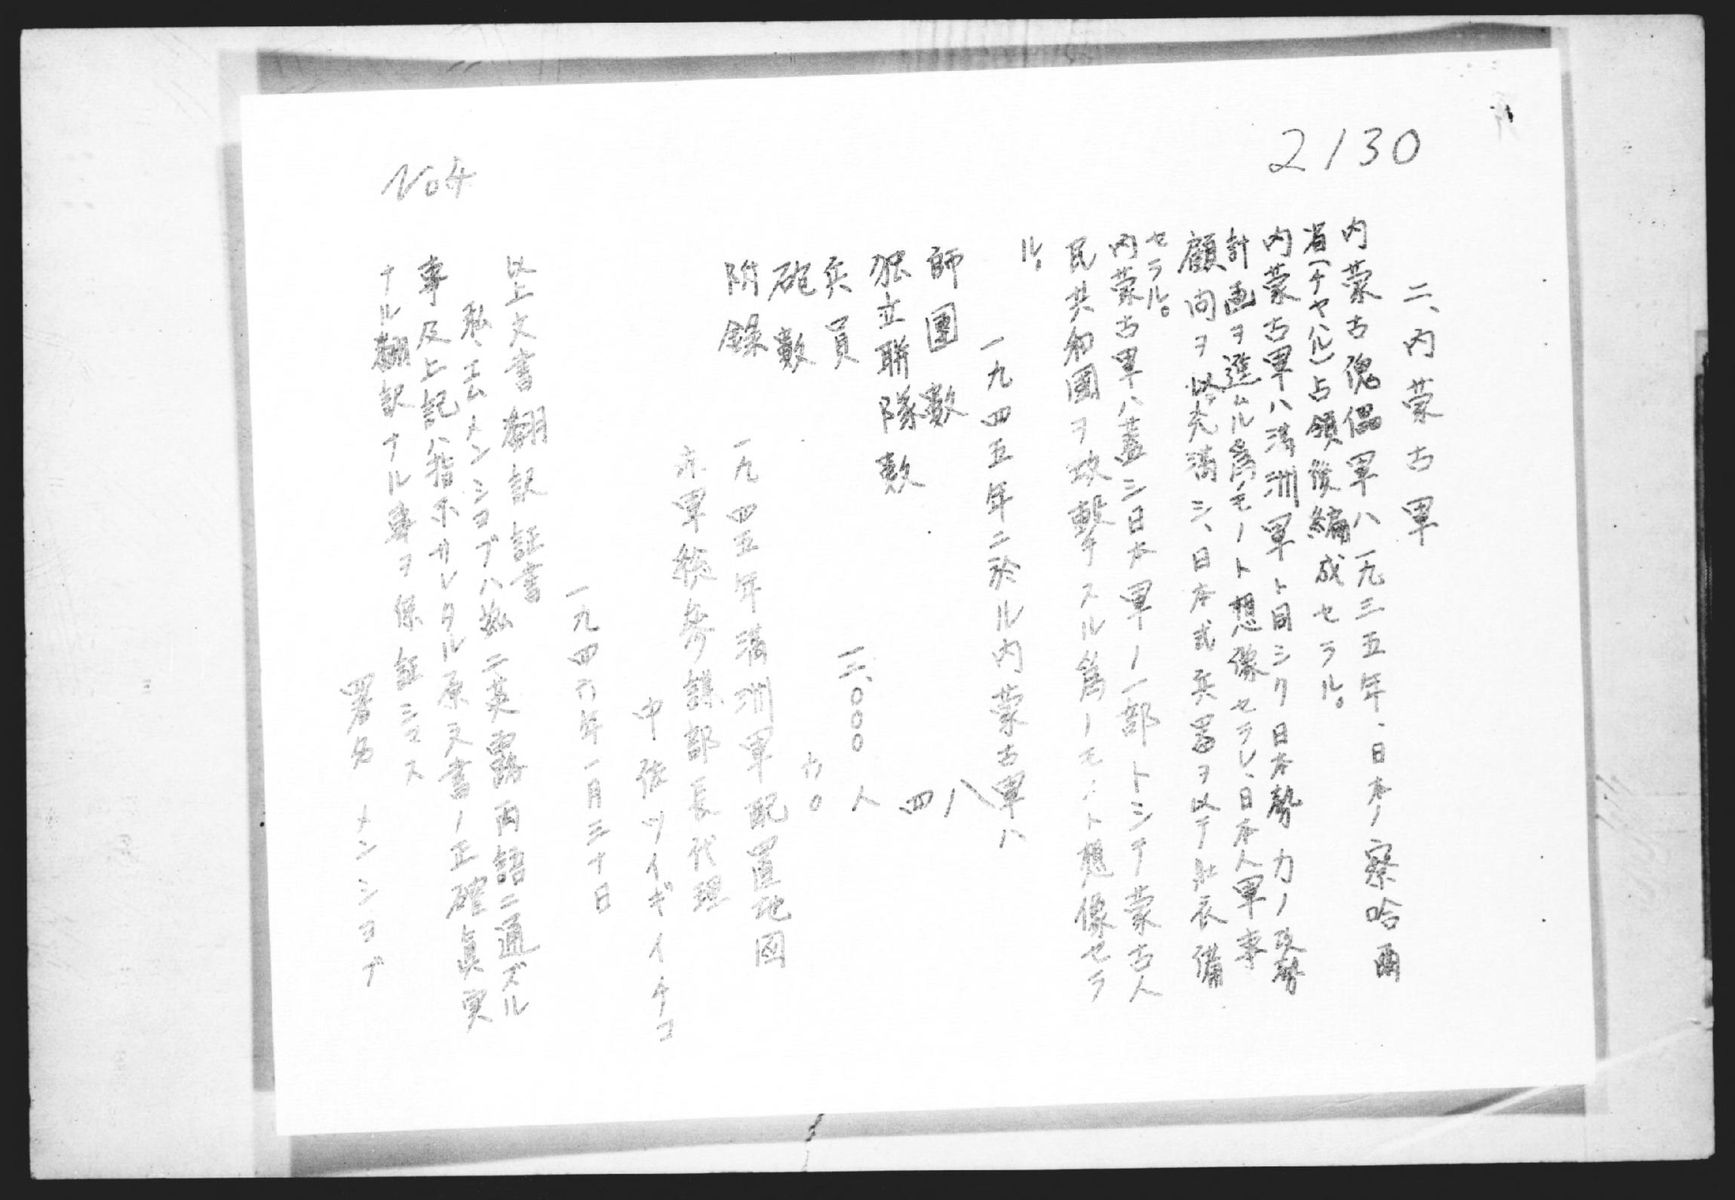 2130
二、内蒙古軍
内蒙古傀儡軍ハ一九三五年、日本ノ察哈爾
省(チヤハル)占領後編成セラル。
内蒙古軍ハ満洲軍ト同シク日本勢力ノ攻勢
計画ヲ進ムル為ノモノト想像セラレ、日本人軍事
顧問ヲ以充満シ、日本式兵器ヲ以テ武装備
セラル。
内蒙古軍ハ蓋シ日本軍ノ一部トシテ蒙古人
民共和國ヲ攻撃スル為ノモノト想像セラ
ル。
一九四五年ニ於ル内蒙古軍ハ
師團數 八
独立聯隊數 四
兵員 一二、〇〇〇人
砲數 六〇
附録
一九四五年満洲軍配置地図
赤軍総参謀部長代理
中佐ツイギイチコ
一九四六年一月三十日
以上文書翻訳証書
私、エムメンシヨブハ茲ニ英露両語ニ通ズル
事及上記ハ指示サレタル原文書ノ正確真実
ナル翻訳ナル事ヲ保証シマス
署名 メンシヨブ
No4